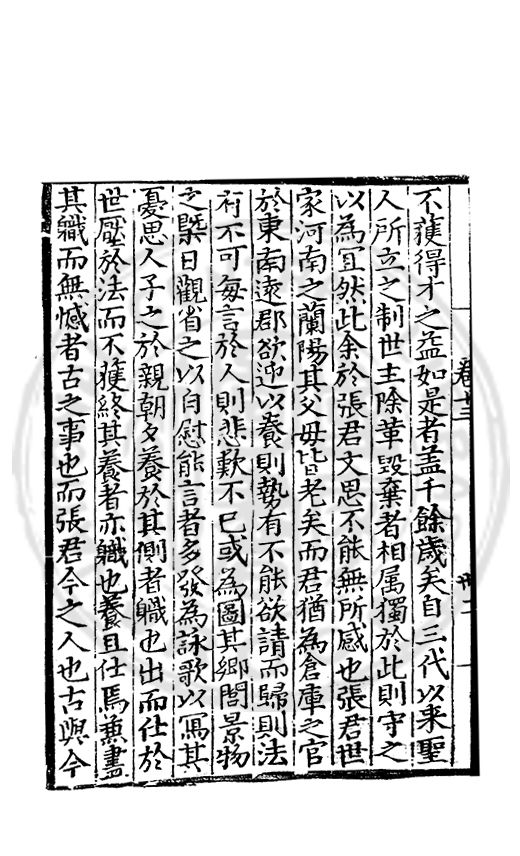 卷十三
卅一
不獲得才之益如是者蓋千餘歲矣自三代以来聖
人所立之制世主除革毀棄者相属獨於此則守之
以為宜然此余於張君文思不能無所感也張君世
家河南之蘭陽其父母皆老矣而君猶為倉庫之官
於東南遠郡欲迎以養則勢有不能欲請而歸則法
有不可每言於人則悲歎不已或為圖其鄉閭景物
之槩日觀省之以自慰能言者多發為詠歌以冩其
憂思人子之於親朝夕養於其側者職也出而仕於
世壓於法而不獲終其養者亦職也養且仕焉兼盡
其職而無憾者古之事也而張君今之人也古與今